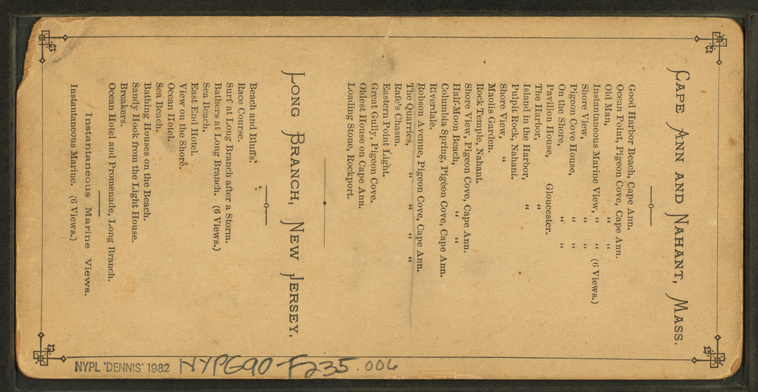 CAPE ANN AND NAHANT, MASS.
Good Harbor Beach, Cape Ann.
Ocean Point, Pigeon Cove, Cape Ann.
Old Man, " " "
Instantaneous Marine View, " " (6 Views.)
Shore View, " "
Pigeon Cove House, " "
On the Shore, " "
Pavilion House, Gloucester.
The Harbor, "
Island in the Harbor, "
Pulpit Rock, Nahant.
Shore View, "
Maolis Garden.
Rock Temple, Nahant.
Shore View, Pigeon Cove, Cape Ann.
Half-Moon Beach, " "
Columbia Spring, Pigeon Cove, Cape Ann.
Riverdale.
Jobson Avenue, Pigeon Cove, Cape Ann.
The Quarries, " " " "
Rafe's Chasm.
Eastern Point Light.
Great Gully, Pigeon Cove.
Oldest House on Cape Ann.
Loading Stone, Rockport.
LONG BRANCH, NEW JERSEY.
Beach and Bluffs.
Race Course.
Surf at Long Branch after a Storm.
Bathers at Long Branch. (6 Views.)
Sea Beach.
East End Hotel.
View on the Shore.
Ocean Hotel.
Sea Beach.
Bathing Houses on the Beach.
Sandy Hook from the Light House.
Breakers.
Ocean Hotel and Promenade, Long Branch.
Instantaneous Marine Views.
Instantaneous Marine. (6 Views.)
NYPL 'DENNIS' 1982 NYPG90-F235 .006